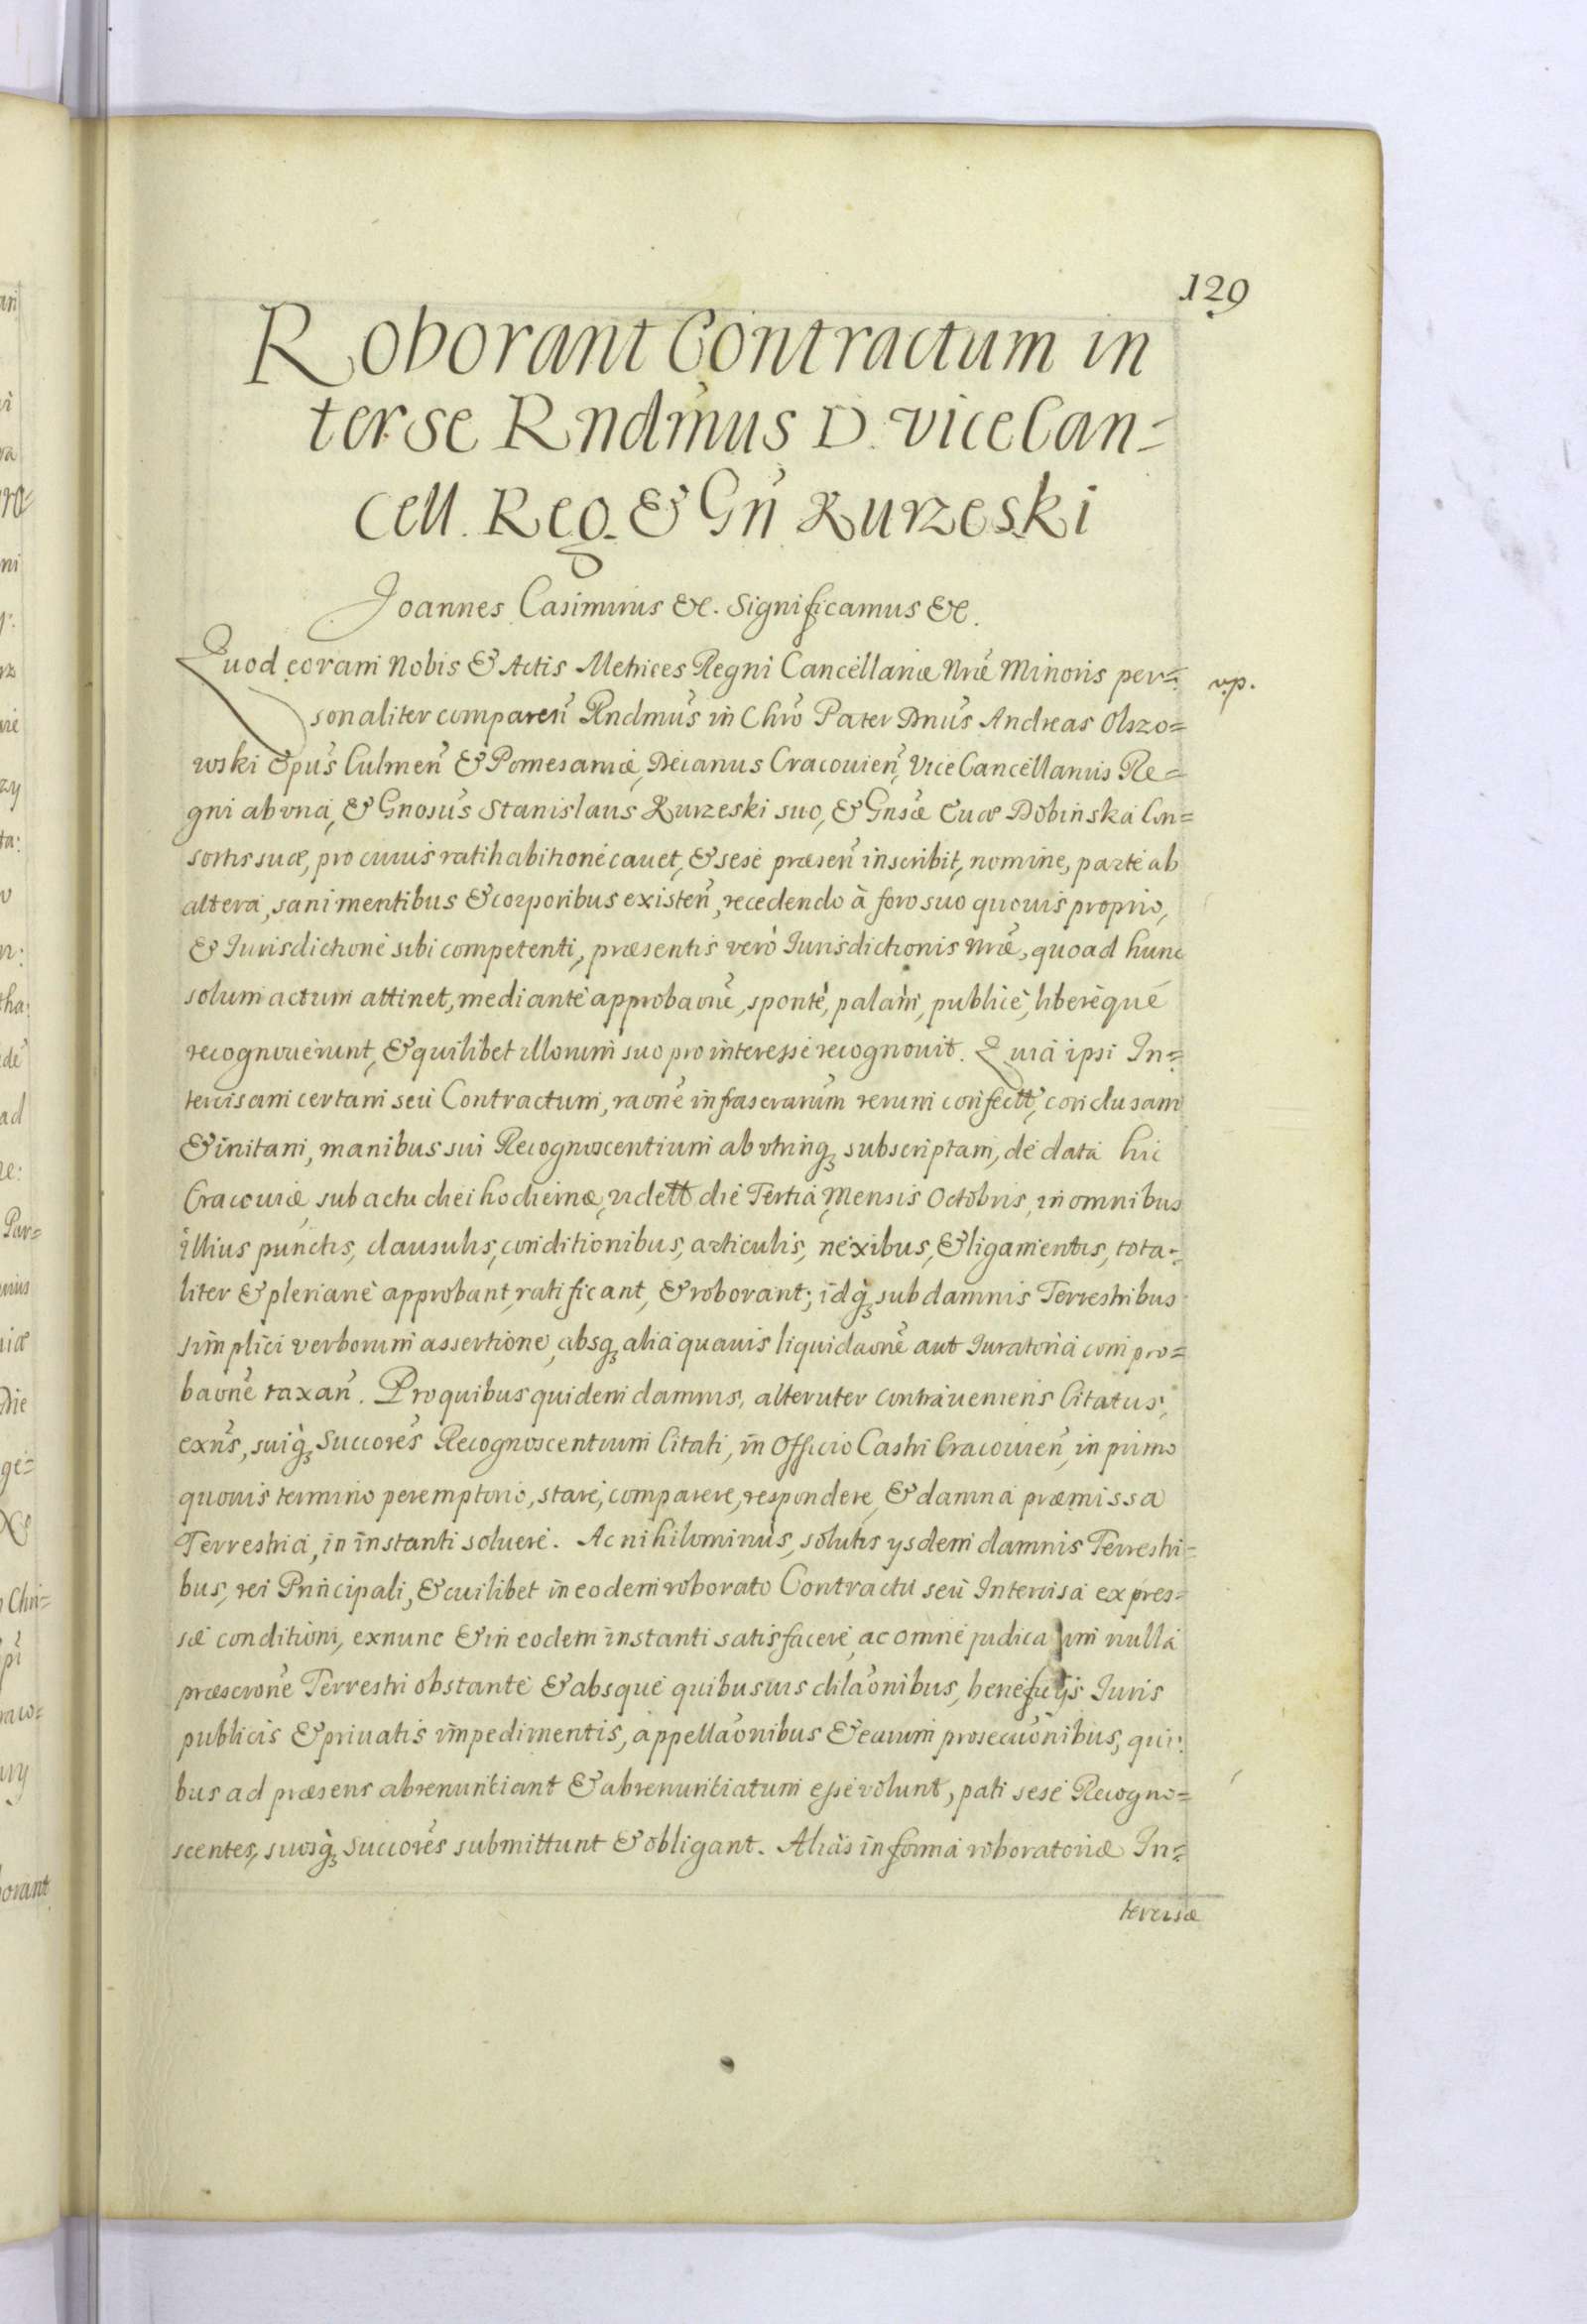 129
Roborant Contractum in
ter se Rndmus D. ViceCan=
cell. Reg. & Gn̄ Kurzeski
Joannes Casimirus &c. Significamus &c.
Quod coram Nobis & Actis Metrices Regni Cancellariæ Nræ Minoris per=
vp.
sonaliter comparen̄ Rndmus in Chro Pater Dnus Andreas Olszo=
wski Epus Culmen̄ & Pomesaniæ, Decanus Cracouien̄, ViceCancellarius Re=
gni ab vna, & Gnosus Stanislaus Kurzeski suo, & Gnsæ Euæ Dobinska Con=
sortis suæ, pro cuius ratihabitione cauet, & sese præsen̄ inscribit, nomine, parte ab
altera, sani mentibus & corporibus existen̄, recedendo à foro suo quouis proprio,
& Jurisdictione sibi competenti, præsentis verò Jurisdictionis Nræ, quoad hunc
solum actum attinet, mediante approbaone, spontè, palàm, publicè, liberèque
recognouerunt, & quilibet illorum suo pro interesse recognouit. Quia ipsi In=
tercisam certam seu Contractum, raone infrascrarum rerum confectt, conclusam
& initam, manibus sui Recognoscentium ab vtrinq3 subscriptam, de data hic
Cracouiæ sub actu diei hodiernæ, vidett die Tertia Mensis Octobris, in omnibus
illius punctis, clausulis, conditionibus, articulis, nexibus, & ligamentis, tota=
liter & plenariè approbant, ratificant, & roborant; idq3 sub damnis Terrestribus
simplici verborum assertione, absq3 alia quauis liquidaone aut Juratoria compro=
baone taxan̄. Pro quibus quidem damnis, alteruter contraueniens Citatus,
exn̄s, suiq3 Succores Recognoscentium Citati, in Officio Castri Cracouien̄, in primo
quouis termino peremptorio, stare, comparere, respondere, & damna præmissa
Terrestria, in instanti soluere. Ac nihilominùs, solutis ysdem damnis Terrestri=
bus, rei Principali, & cuilibet in eodem roborato Contractu seu Intercisa expres=
sæ conditioni, exnunc & in eodem instanti satisfacere, ac omne judica um nulla
præscrone Terrestri obstante & absque quibusuis dilaonibus, beneficijs Juris
publicis & priuatis impedimentis, appellaonibus & earum prosecuonibus, qui=
bus ad præsens abrenuntiant & abrenuntiatum esse volunt, pati sese Recogno=
scentes, suosq3 Succores submittunt & obligant. Aliàs in forma roboratoriæ In=
tercisæ